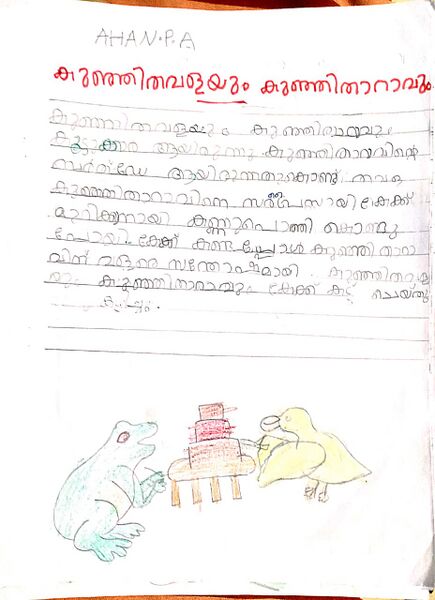 AHAN.P.A
കുഞ്ഞിതവളയും കുഞ്ഞിതാറാവും
കുഞ്ഞിതവളയും കുഞ്ഞിതാറാവും
കൂട്ടുകാർ ആയിരുന്നു കുഞ്ഞിതാറാവിന്റെ
ബർത്ഡേ ആയിരുന്നതുകൊണ്ട് തവള
കുഞ്ഞിതാറാവിനെ സർപ്രൈസായി കേക്ക്
മുറിക്കുന്നായി കണ്ണുപൊത്തി കൊണ്ടു
പോയി. കേക്ക് കണ്ടപ്പോൾ കുഞ്ഞിതാറാ
വിന് വളരെ സന്തോഷമായി. കുഞ്ഞിതവള
യും കുഞ്ഞിതാറാവും കേക്ക് കട്ട് ചെയ്തു